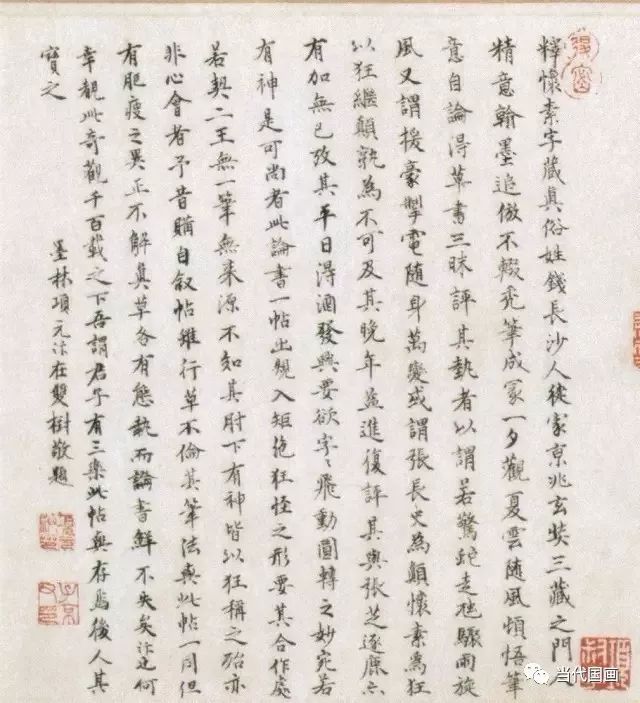 釋懷素字藏真俗姓錢長沙人徙家京兆玄奘三藏之門人
精意翰墨追倣不輟禿筆成冢一夕觀夏雲隨風頓悟筆
意自論得草書三昧評其執者以謂若驚蛇走虺驟雨旋
風又謂援豪掣電隨身萬變或謂張長史為顛懷素為狂
以狂繼顛孰為不可及其晚年益進復評其與張芝逐鹿亦
有加無已攷其平日得酒發興要欲字〻飛動圓轉之妙宛若
有神是可尚者此論書一帖出規入矩絶狂怪之形要其合作處
若契二王無一筆無来源不知其肘下有神皆以狂稱之殆亦
非心會者予昔購自叙帖雖行草不倫其筆法與此帖一同但
有肥瘦之異正不解真草各有態執而論書鮮不失矣汴何
幸覩此奇觀千百載之下吾謂君子有三樂此帖與存焉後人其
寶之
墨林項元汴在雙樹敬題
当代国画